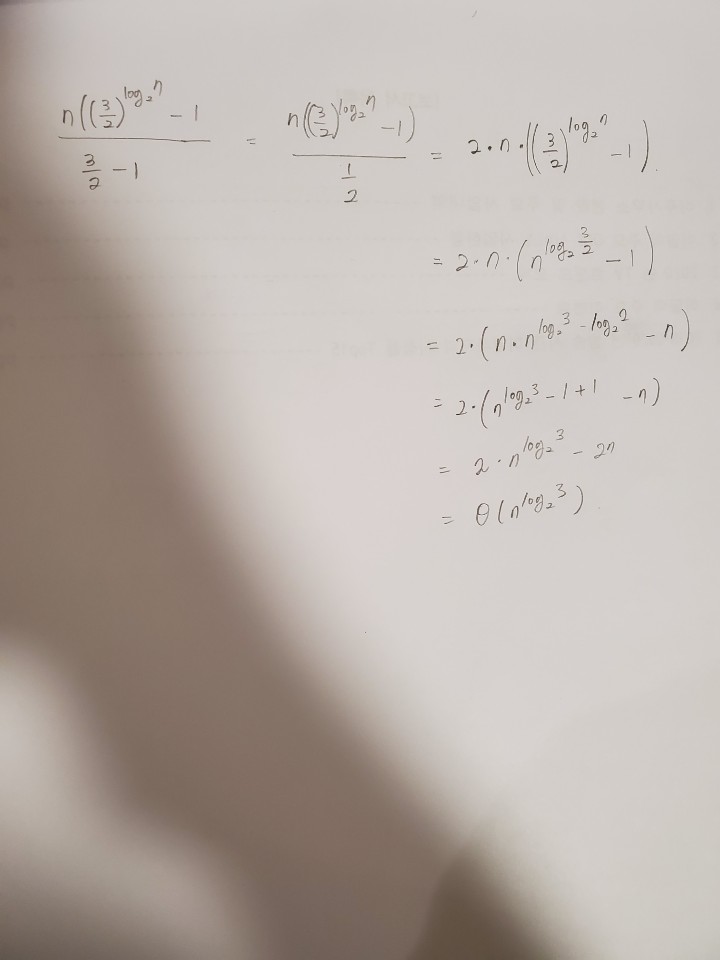 n((3/2)^log₂n - 1 / 3/2 - 1 = n((3/2)^log₂n - 1) / 1/2 = 2·n·((3/2)^log₂n - 1).
= 2·n·(n^log₂3/2 - 1)
= 2·(n·n^log₂3 - log₂2 - n)
= 2·(n^log₂3 - 1 + 1 - n)
= 2·n^log₂3 - 2n
= θ(n^log₂3)